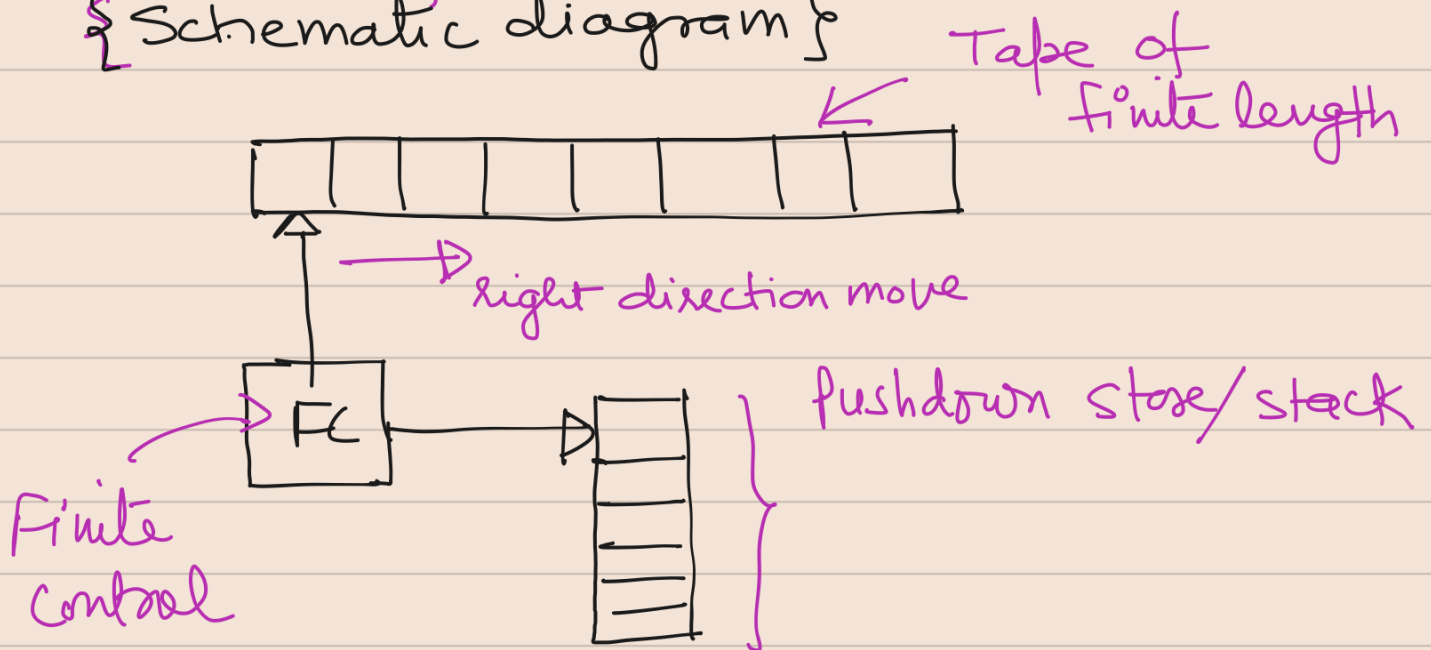 {Schematic diagram}
Tape of
finite length
right direction move
FC
Pushdown store/stack
Finite
control